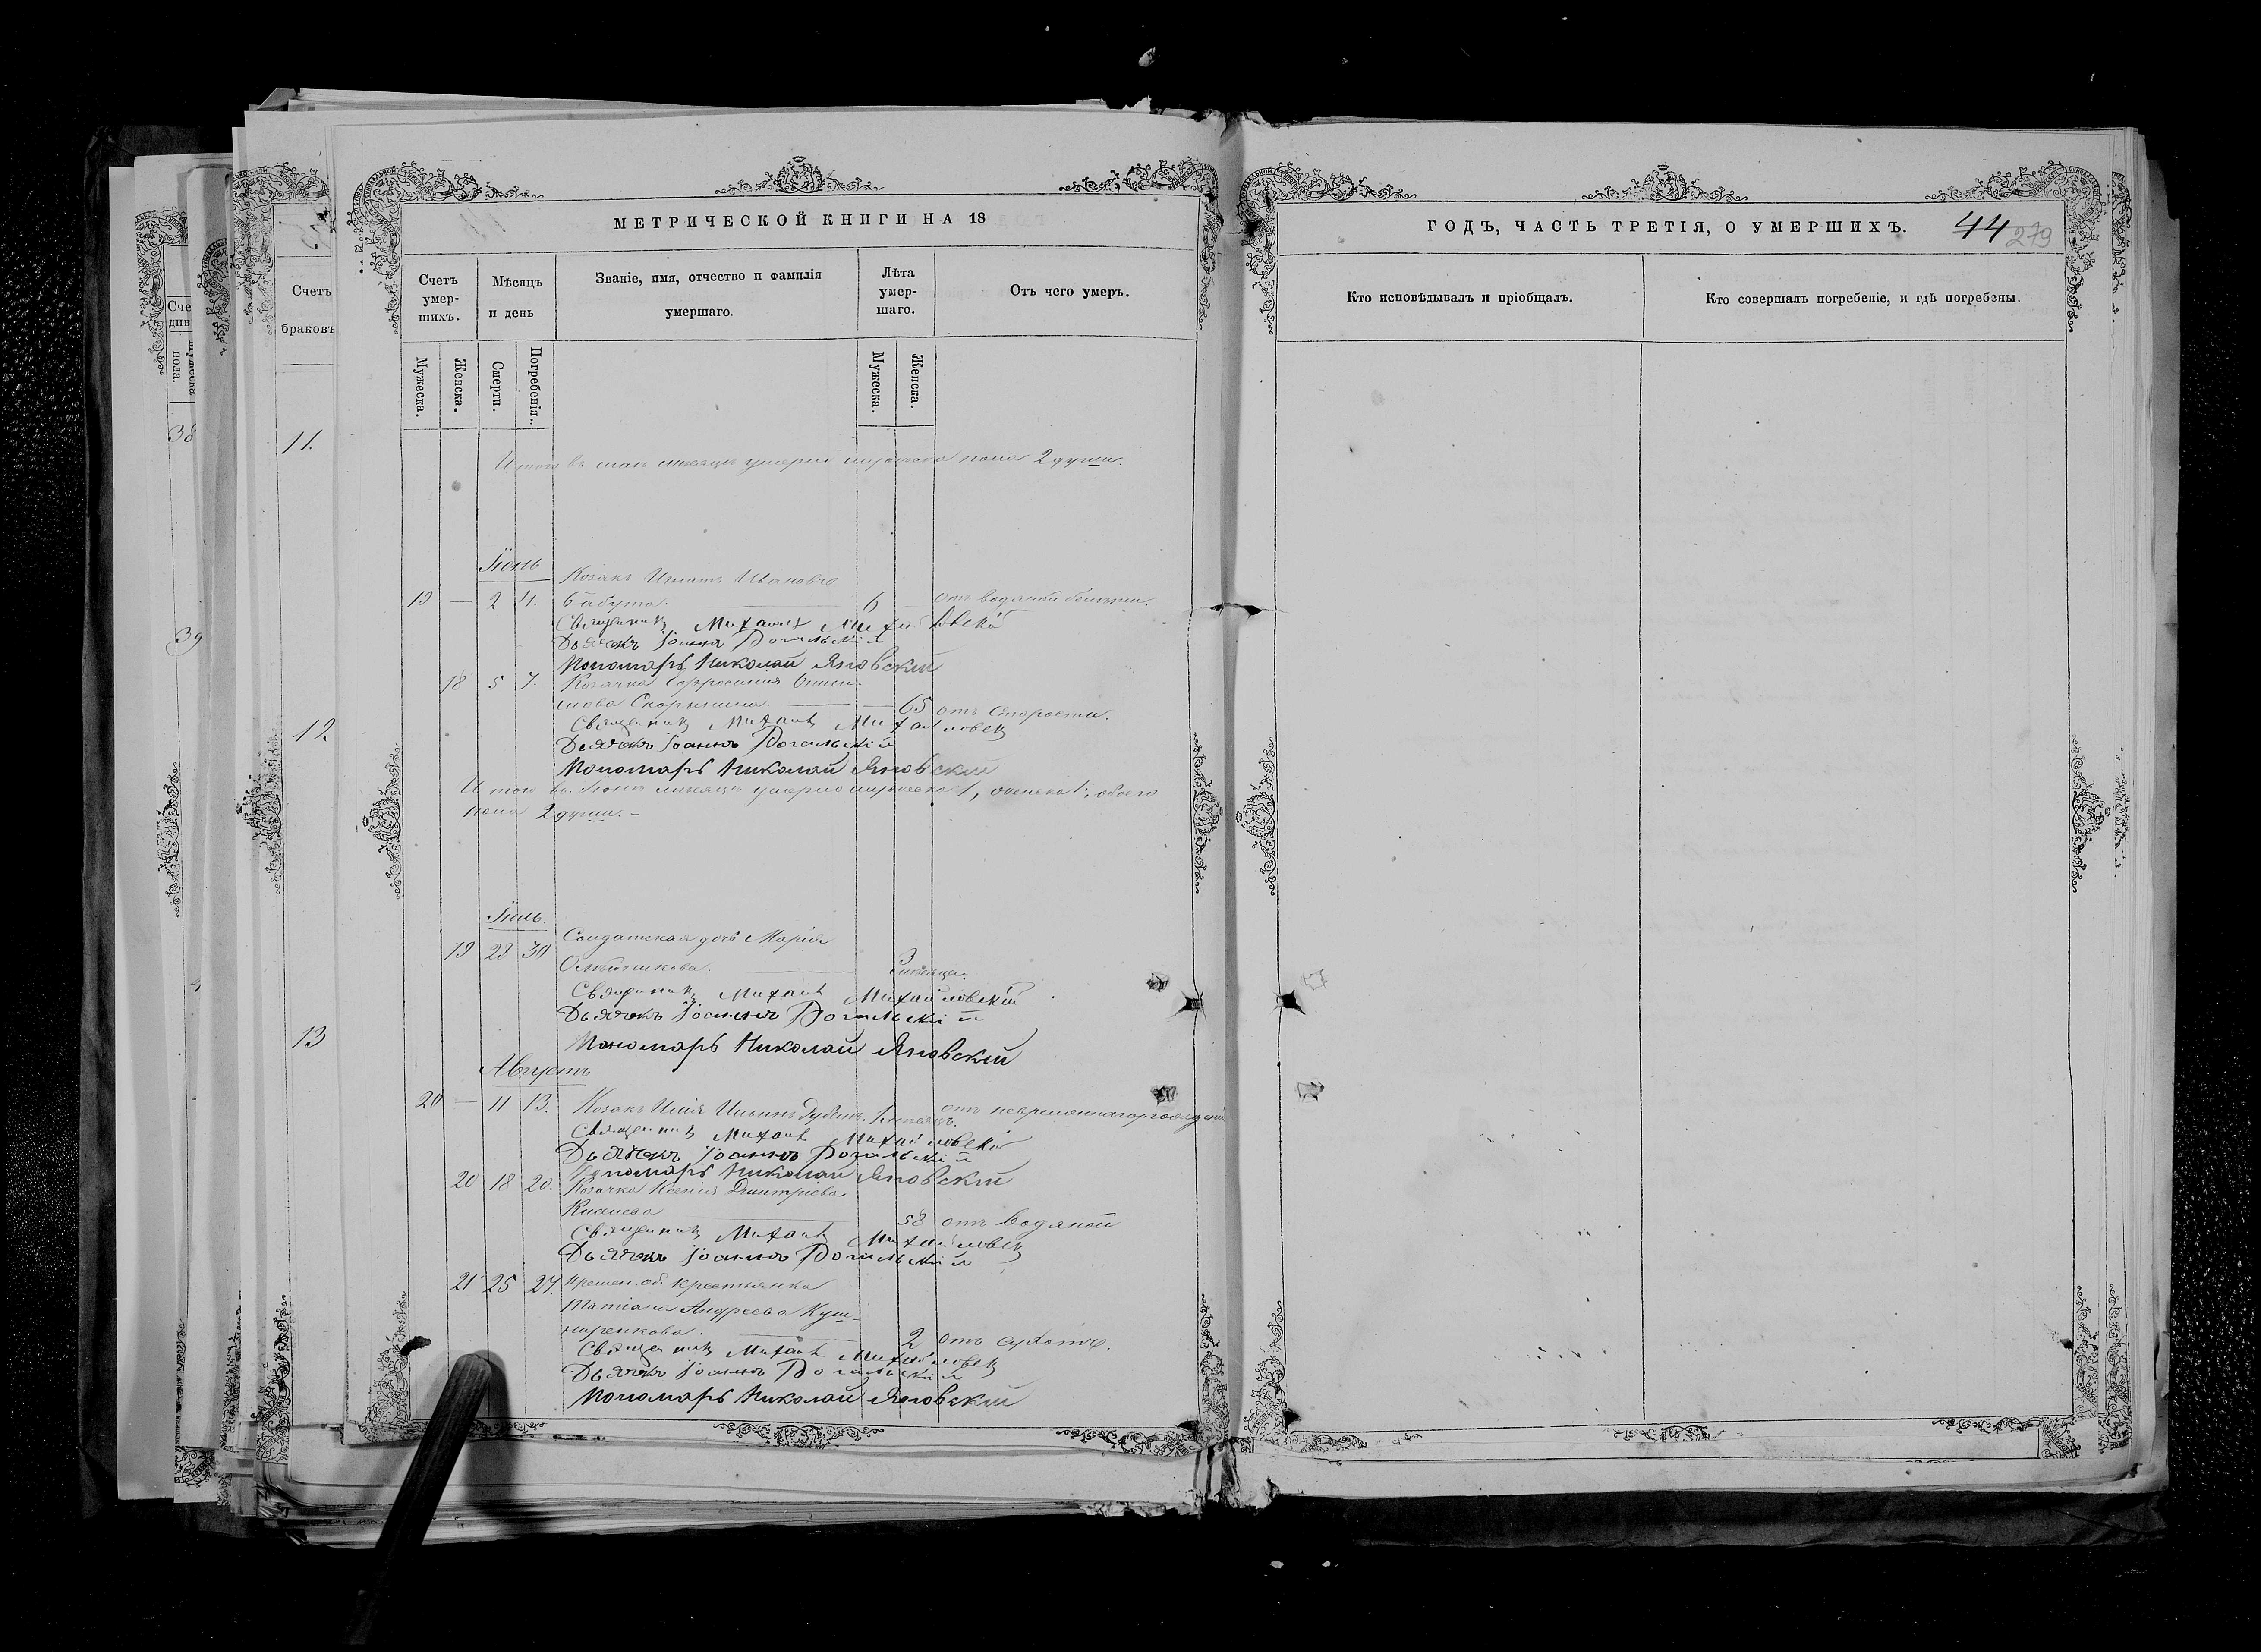 МЕТРИЧЕСКОЙ КНИГИ НА 18
ГОДЪ, ЧАСТЬ ТРЕТІЯ, О УМЕРШИХЪ.
44
279
Счетъ умер-шихъ.
Мѣсяцъ и день
Званіе, имя, отчество и фамилія умершаго.
Лѣта умер-шаго.
Отъ чего умеръ.
Кто исповѣдывалъ и пріобщалъ.
Кто совершалъ погребеніе, и гдѣ погребены.
Мужеска.
Женска.
Смерти.
Погребенія.
Мужеска.
Женска.
Счетъ браковъ
11.
12
13
38
39
Итого въ маѣ мѣсяцѣ умерло мужеска пола 2 души.
Іюнь
Козакъ Игнатъ Ивановъ
19 — 2 4. Бабута. 6 отъ водяной болезни.
Священникъ Михаилъ Михайловскій
Дьячекъ Іоаннъ Рогальскій
Пономарь Николай Яновскій
18 5 7. Козачка Евфросинія
65 отъ старости.
Священникъ Михаилъ Михайловск
Дьячекъ Іоаннъ Рогальскій
Пономарь Николай Яновскій
Итого въ Іюнѣ мѣсяцѣ умерло мужеска 1, женска 1, обоего
пола 2 души. —
Іюль.
Солдатская дочь Марія
19 28 30
3 мѣсяца.
Священникъ Михаилъ Михайловскій
Дьячекъ Іоаннъ Рогальскій
Пономарь Николай Яновскій
Августъ
20 — 11 13. Козакъ Илія Ильинъ
Священникъ Михаилъ Михайловскій
Дьячекъ Іоаннъ Рогальскій
Пономарь Николай Яновскій
20 18 20. Козачка Ксенія Дмитріева
Киселева 58 отъ водяной
Священникъ Михаилъ Михайловск
Дьячекъ Іоаннъ Рогальскій
21 25 27. Времен. об. крестьянка
Татіана Андреева Куш-
ниренкова. 2 отъ сухоты.
Священникъ Михаилъ Михайловск
Дьячекъ Іоаннъ Рогальскій
Пономарь Николай Яновскій